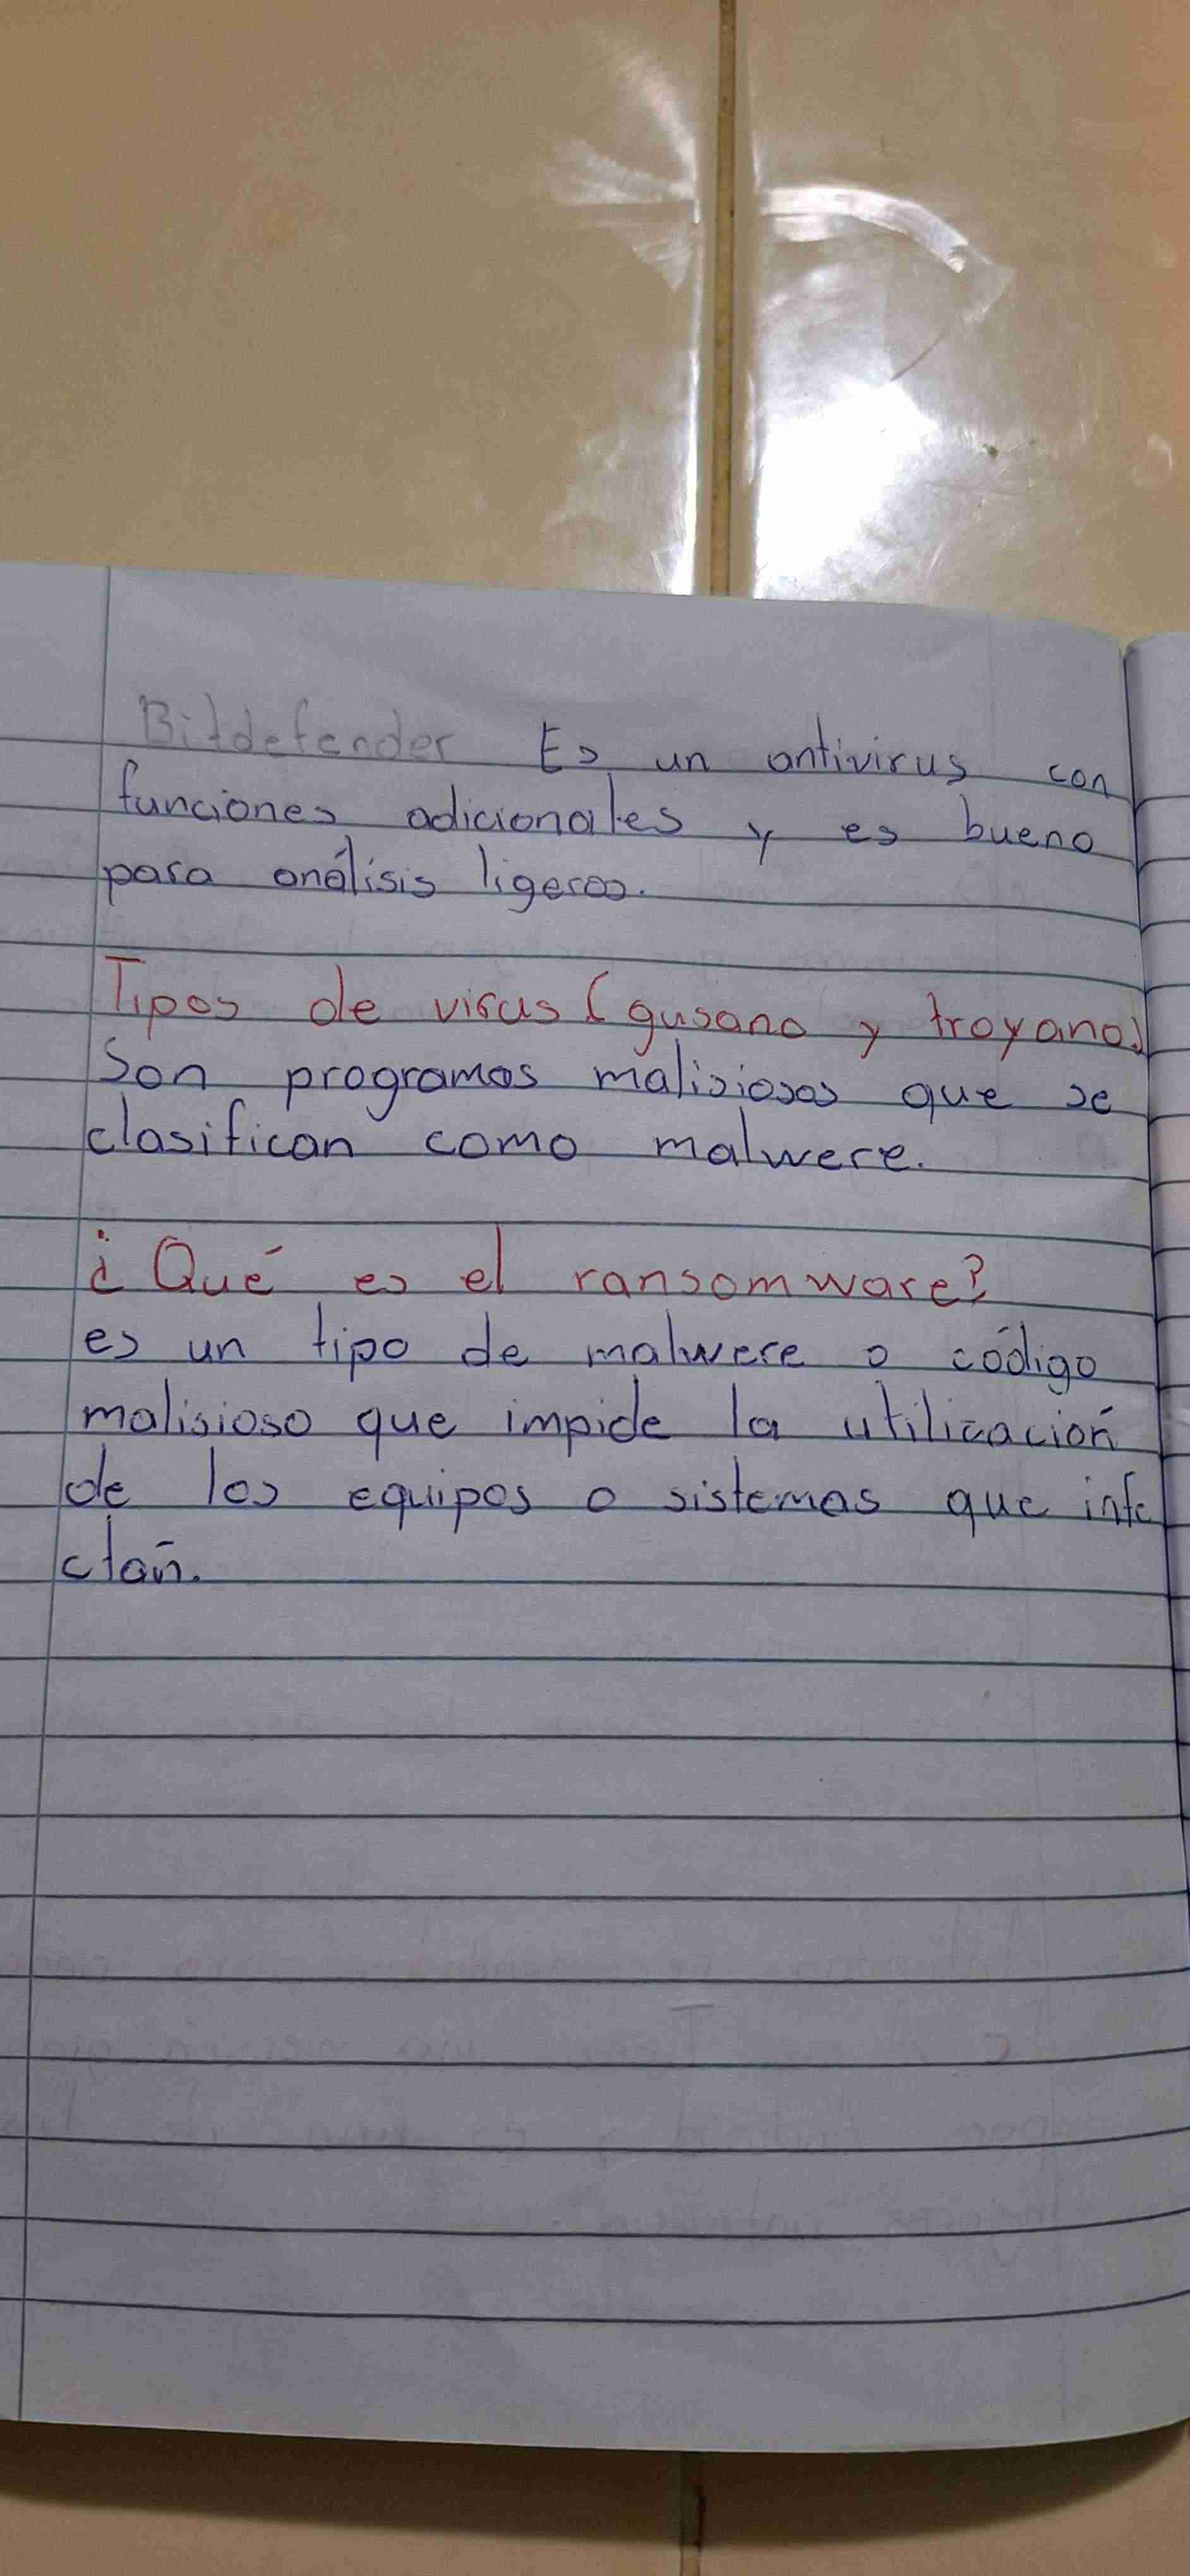 Bitdefender Es un antivirus con
funciones adicionales y es bueno
para análisis ligeros.
Tipos de virus (gusano y troyano)
Son programas malisiosos que se
clasifican como malwere.
¿Qué es el ransomware?
es un tipo de malwere o código
malisioso que impide la utilización
de los equipos o sistemas que infe
ctan.